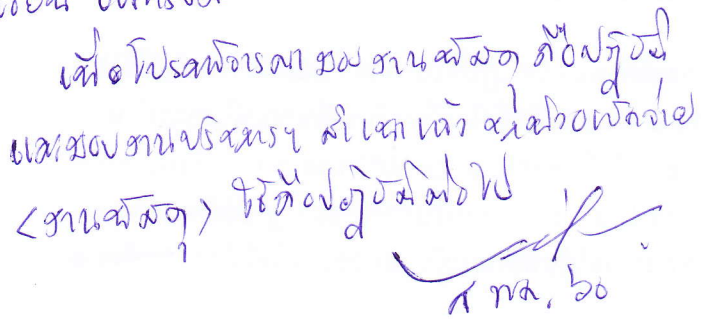 เพื่อโปรดพิจารณา มอบ งานพัสดุ ถือปฏิบัติ
และมอบงานบริหารฯ สำเนาแล้ว เบิกจ่าย
<งานพัสดุ> ใช้ถือปฏิบัติต่อไป
พ.ค. ๖๐